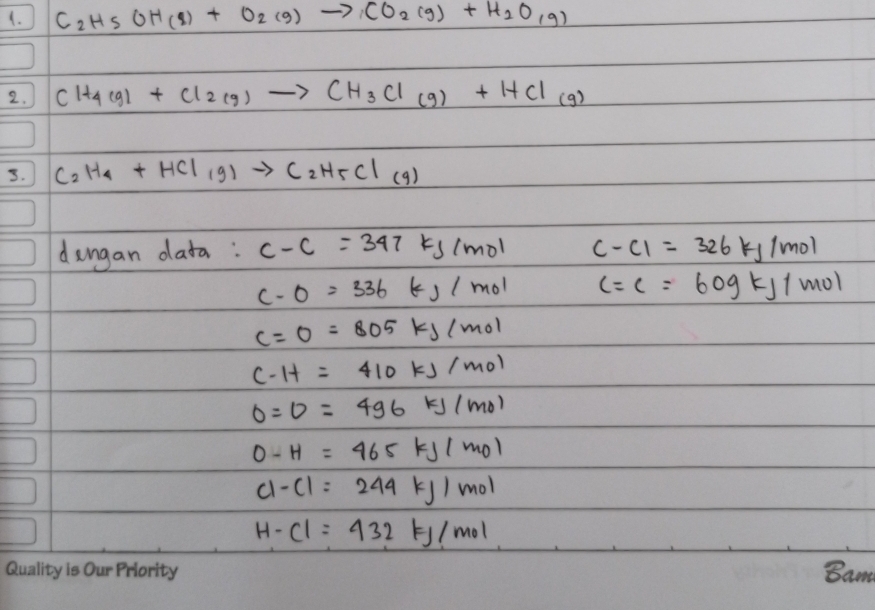 1. C₂H₅OH(g) + O₂(g) → CO₂(g) + H₂O(g)
2. CH₄(g) + Cl₂(g) → CH₃Cl(g) + HCl(g)
3. C₂H₄ + HCl(g) → C₂H₅Cl(g)
dengan data : C-C = 347 kJ/mol C-Cl = 326 kJ/mol
C-O = 336 kJ/mol C=C = 609 kJ/mol
C=O = 805 kJ/mol
C-H = 410 kJ/mol
O=O = 496 kJ/mol
O-H = 465 kJ/mol
Cl-Cl = 244 kJ/mol
H-Cl = 432 kJ/mol
Quality is Our Priority